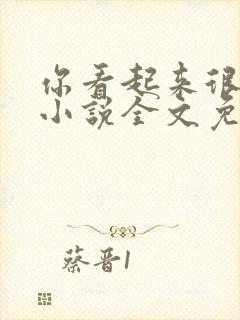 你看起来很
小说全文免
蔡晋1